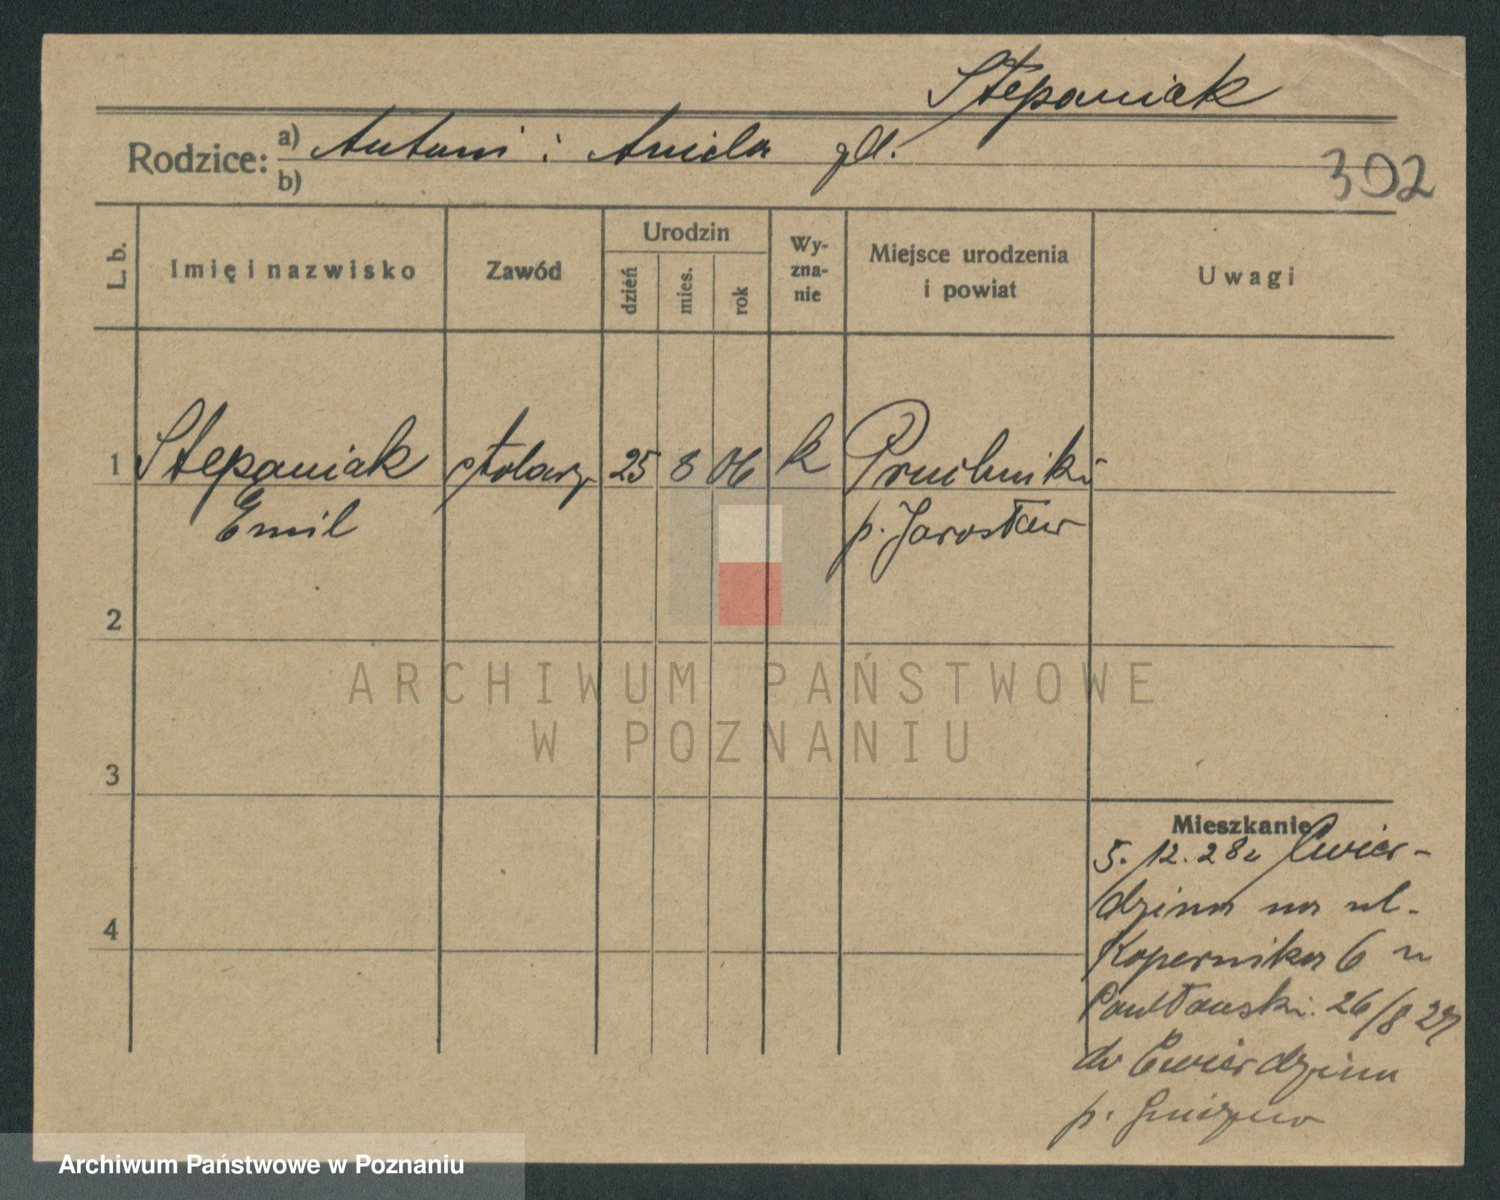 Stepaniak
Rodzice: a) Antoni i Aniela
b)
302
L. b.
Imię i nazwisko
Zawód
Urodzin
dzień
mies.
rok
Wy-
zna-
nie
Miejsce urodzenia
i powiat
Uwagi
1 Stepaniak stolarz 25 8 06 k Pruchnik
Emil p. Jarosław
2
3
4
Mieszkanie
5. 12. 28 z Ćwier-
dzina na ul.
Kopernika 6 u
26/8 29
do Ćwierdzina
p. Gniezno
ARCHIWUM PAŃSTWOWE
W POZNANIU
Archiwum Państwowe w Poznaniu